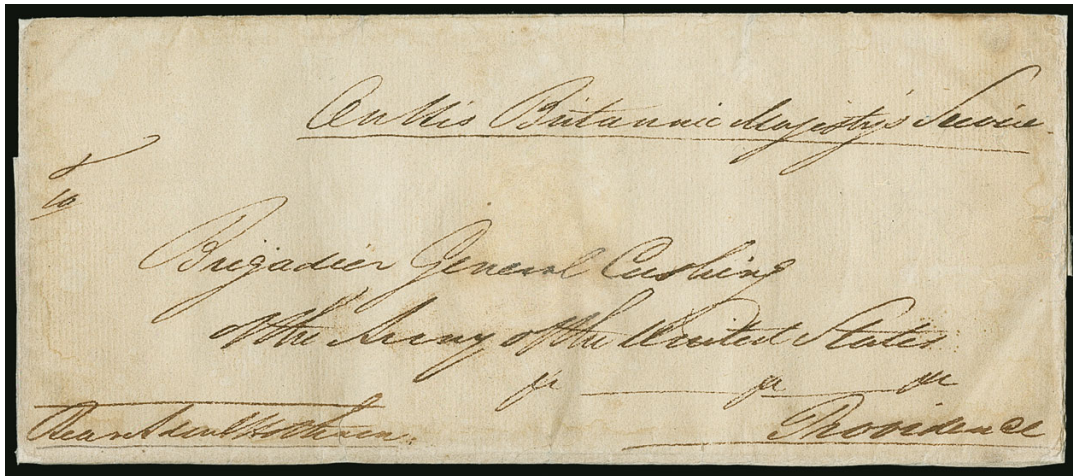 On His Britannic Majesty's Service
Brigadier General Cushing
of the Army of the United States
&c &c &c
Rear Adml Hotham
Providence